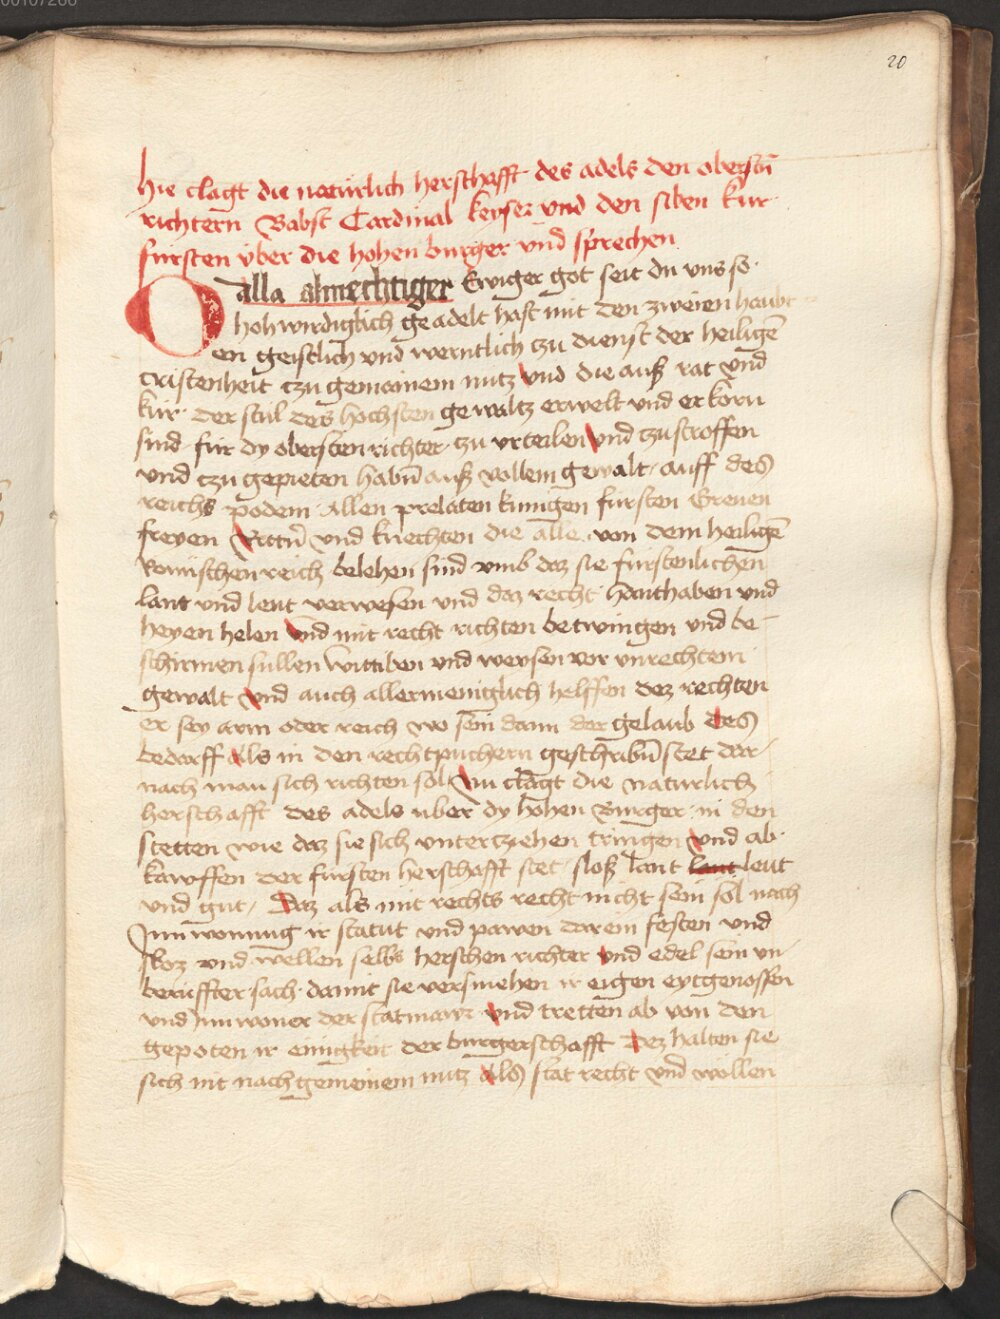 00107200
20
hie clagt die naturlich herschafft des adels den oberstn̄
richtern Babst Cardinal keyser vnd den siben kur
fursten vber die hohen burger vnd sprechen
O alla almechtiger Ewiger got seit du vns so
hohwirdiglich geadelt hast mit den zweien haubt
en geistlich vnd werntlich czu dienst der heiligē
cristenheit czu gemainem nutz vnd die auß rat vnd
kür der stül des hochsten gewaltz erwelt vnd erkorn
sind für dy obersten richter zu vrteilen vnd czu stroffen
vnd czu gepieten habn̄ auß vollem gewalt auff des
reichs podem Allen prelaten kunigen fursten Greuen
freyen Rittn̄ vnd knechten die alle von dem heiligē
Romischen reich belehen sind vmb daz sie fürstenlichen
lant vnd leut verwesen vnd daz recht hanthaben vnd
heyen helen vnd mit recht richten betwingen vnd be-
schirmen sullen wittiben vnd weysen vor vnrechtem
gewalt vnd auch allermeniglich helffen dez rechten
er sey arm oder reich wo sein dann der gelaub des
bedarff als in den rechtpuchern geschribn̄ stet dar
nach man sich richten sol Nu clagt die naturlich
herschafft des adels uber dy hohen Burger in den
stetten wie daz sie sich vntercziehen tringen vnd ab
kawffen der fursten herschafft stet sloß lant leut
vnd gut / Daz als mit rechts recht nicht sein sol nach
Innwonung ir statut vnd pawen darein festen vnd
sloz vnd wellen selbs herschen richter vnd edel sein vn
beruffter sach damit sie versmehen ir eigen eytgenossen
vnd Innwoner der statmawr vnd tretten ab von den
gepoten ir einigkeit der burgerschafft Dez halten sie
sich nit nach gemeinem nutz als stat recht vnd wollen